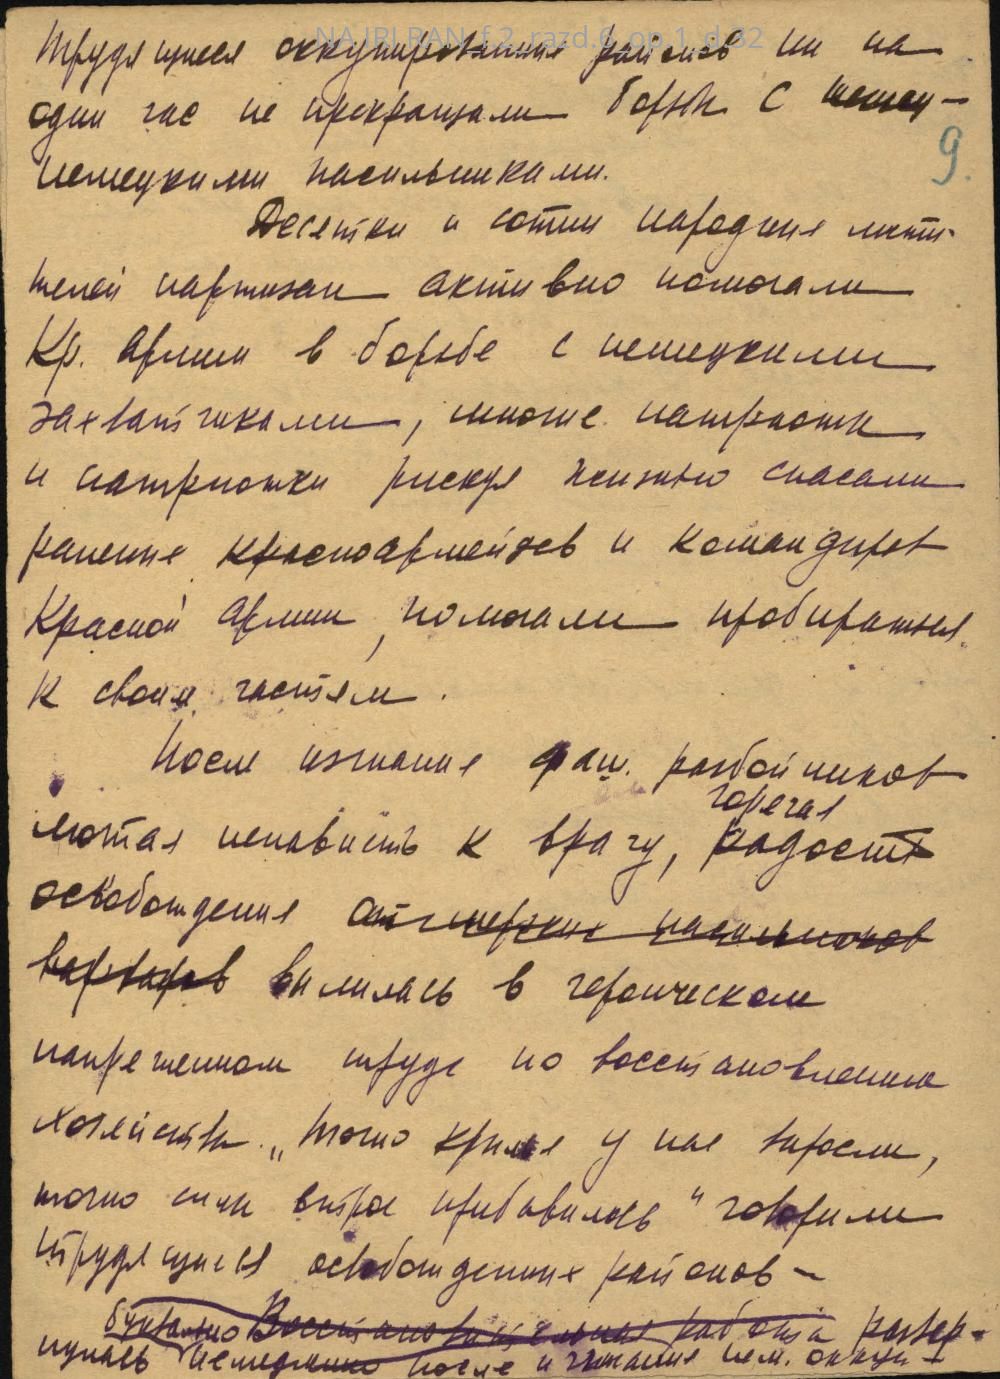 NA IRI RAN, f.2, razd.6, op.1, d.32
трудящиеся оккупированных районов ни на
один час не прекращали борьбы с
немецкими насильниками.
9.
Десятки и сотни народных мсти-
телей партизан активно помогали
Кр. Армии в борьбе с немецкими
захватчиками, многие патриоты
и патриотки рискуя жизнью спасали
раненых красноармейцев и командиров
Красной Армии, помогали пробираться
к своим частям.
После изгнания фаш. разбойников
горячая
лютая ненависть к врагу, радость
освобождения от насильников
варваров вылилась в героическом
напряженном труде по восстановлению
хозяйства. „Точно крылья у нас выросли,
точно силы втрое прибавилось" говорили
трудящиеся освобожденных районов –
буквально Восстановительная работа развер-
нулась немедленно после изгнания нем. оккуп-